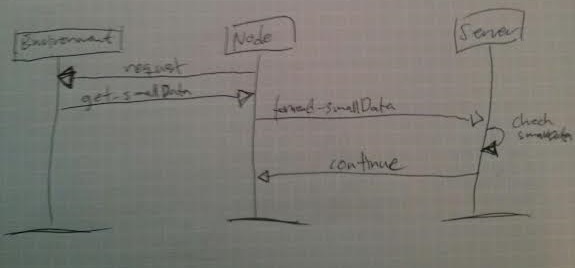 Environment
Node
Server
request
get-smallData
forward-smallData
check
smallData
continue